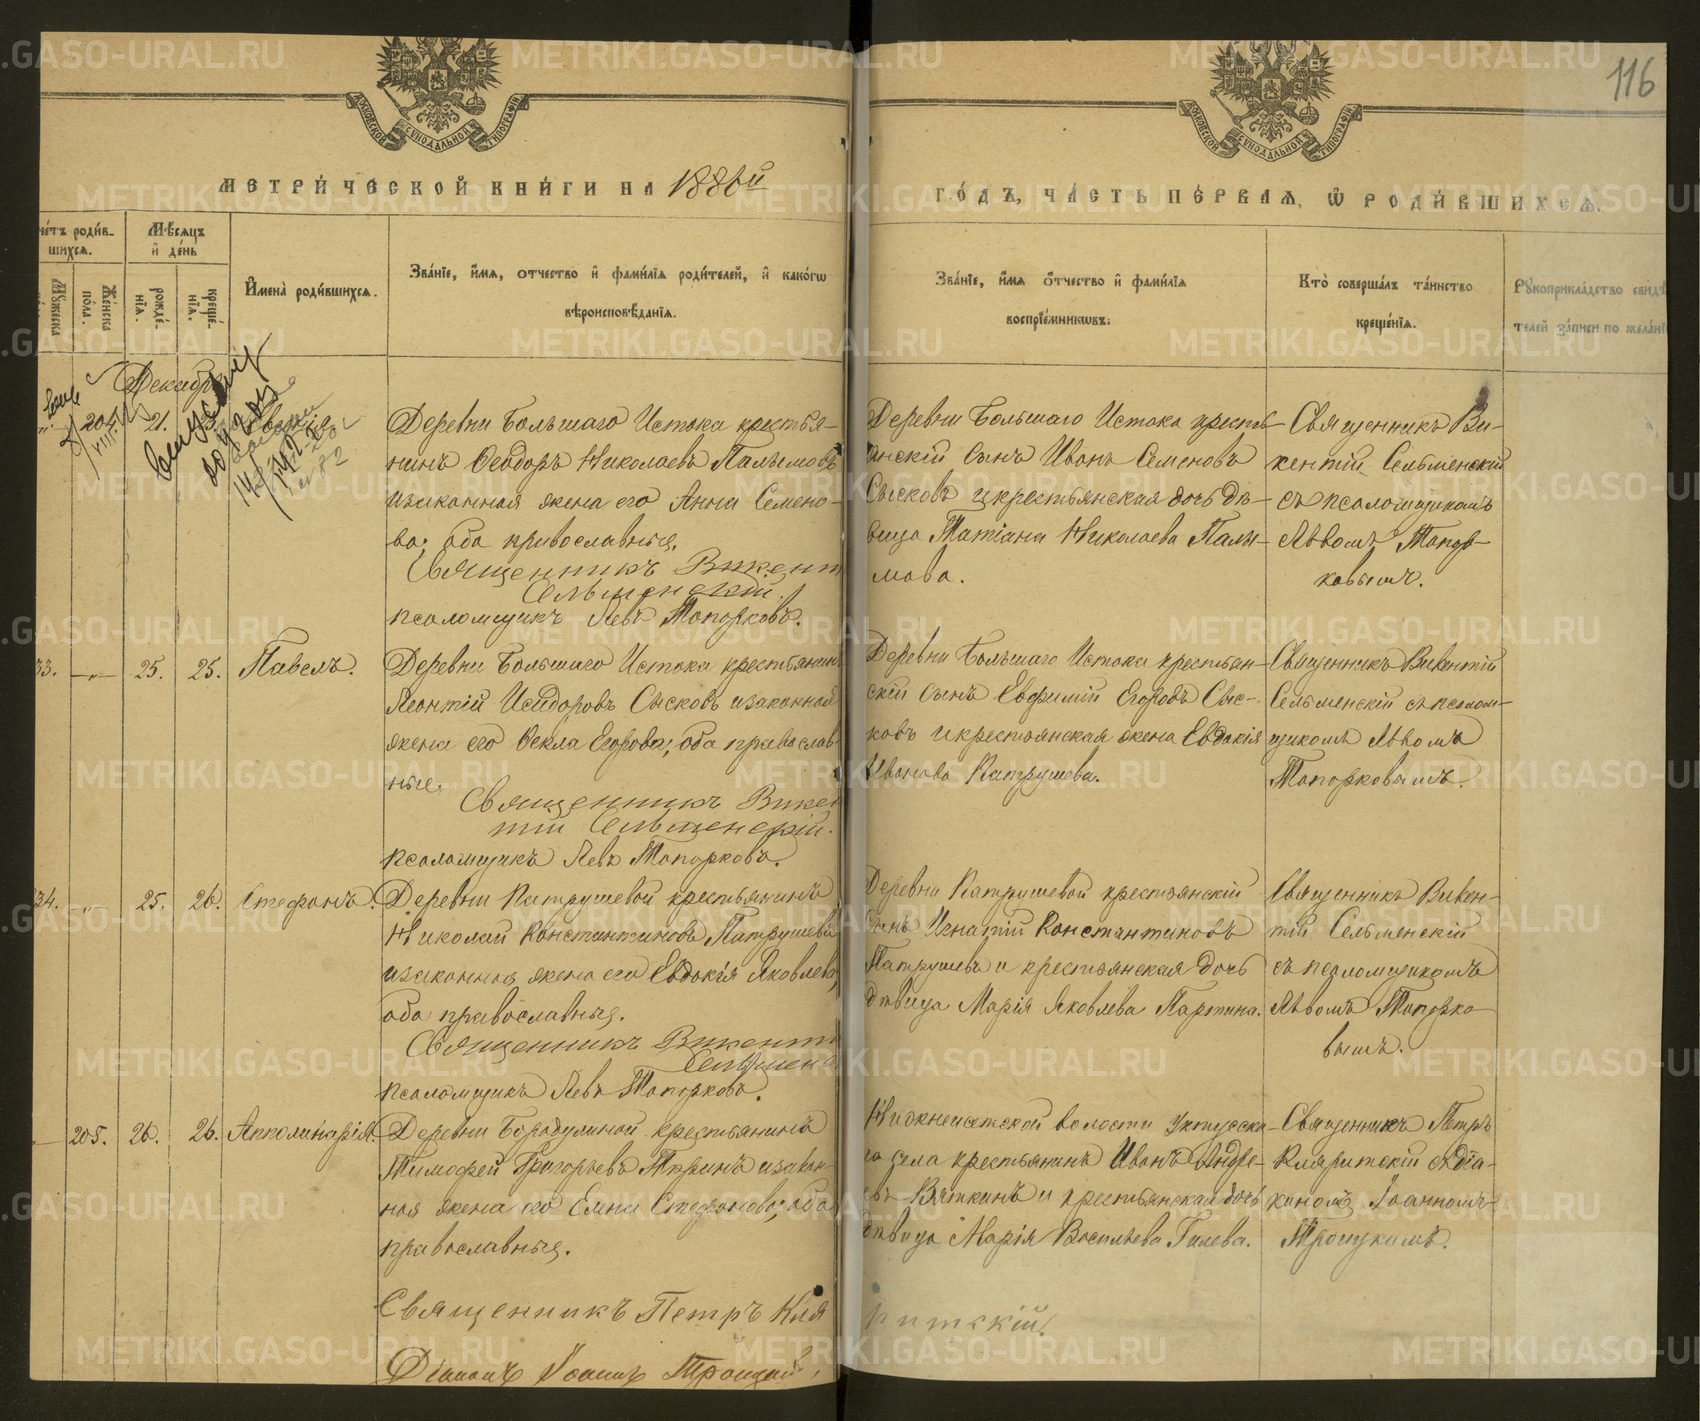 116
МОСКОВСКОЙ СѴНОДАЛЬНОЙ ТИПОГРАФІИ
МОСКОВСКОЙ СѴНОДАЛЬНОЙ ТИПОГРАФІИ
МЕТРИ́ЧЕСКОЙ КНИ́ГИ НА 1886й
ГО́ДЪ, ЧА́СТЬ ПЕ́РВАѦ, Ѡ҆ РОДИ́ВШИХСѦ.
че́тъ роди́в-
шихсѧ.
Мѣ́сѧцъ
и҆ де́нь
Мꙋ́жеска
Же́нска
по́ла.
рожде́-
нїѧ.
креще́-
нїѧ.
И҆мена̀ роди́вшихсѧ.
Зва́нїе, и҆́мѧ, ѻ҆́тчество и҆ фами́лїѧ роди́телей, и҆ како́гѡ
вѣроисповѣ́данїѧ.
Зва́нїе, и҆́мѧ ѻ҆́тчество и҆ фами́лїѧ
воспрїе́мникѡвъ.
Кто̀ соверша́лъ та́инство
креще́нїѧ.
Рꙋкоприкла́дство свидѣ́
телей за́писи по жела́нї
Декабрь
204. 21.
Деревни Большаго Истока крестья-
нинъ Ѳеодоръ Николаевъ Палымовъ
и законная жена его Анна Семено-
ва; оба православные.
Священникъ Викент
Сельменскій.
псаломщикъ Левъ Топорковъ.
Деревни Большаго Истока кресть-
янскій сынъ Иванъ Семеновъ
Сысковъ и крестьянская дочь дѣ-
вица Татіана Николаева Палы-
мова.
Священникъ Ви-
кентій Сельменскій
съ псаломщикомъ
Львомъ Топор-
ковымъ.
33. —„— 25. 25. Павелъ.
Деревни Большаго Истока крестьянинъ
Леонтій Исидоровъ Сысковъ и законная
жена его Ѳекла Егорова; оба православ-
ные.
Священникъ Викен
тій Сельменскій.
псаломщикъ Левъ Топорковъ.
Деревни Большаго Истока крестьян-
скій сынъ Евфимій Егоровъ Сыс-
ковъ и крестьянская жена Евдокія
Иванова Патрушева.
Священникъ Викентій
Сельменскій съ псалом-
щикомъ Львомъ
Топорковымъ.
34. —„— 25. 26. Стефанъ.
Деревни Патрушевой крестьянинъ
Николай Константиновъ Патрушевъ
и законная жена его Евдокія Яковлева;
оба православные.
Священникъ Викент
Сельменс
псаломщикъ Левъ Топорковъ.
Деревни Патрушевой крестьянскій
сынъ Игнатій Константиновъ
Патрушевъ и крестьянская дочь
дѣвица Марія Яковлева Партина.
Священникъ Викен-
тій Сельменскій
съ псаломщикомъ
Львомъ Топорко-
вымъ.
205. 26. 26. Апполинарія.
Деревни Бородулиной крестьянинъ
Тимофей Григорьевъ Тяринъ и закон-
ная жена его Елена Стефанова; оба
православные.
Священникъ Петръ Кля
Діаконъ Іоаннъ Троицкій.
Нижнеисетской волости Уктусска-
го села крестьянинъ Иванъ Андре-
евъ Вяткинъ и крестьянская дочь
дѣвица Марія Васильева Гилева.
ритскій.
Священникъ Петръ
Кляритскій съ діа-
кономъ Іоанномъ
Троицкимъ.
METRIKI.GASO-URAL.RU